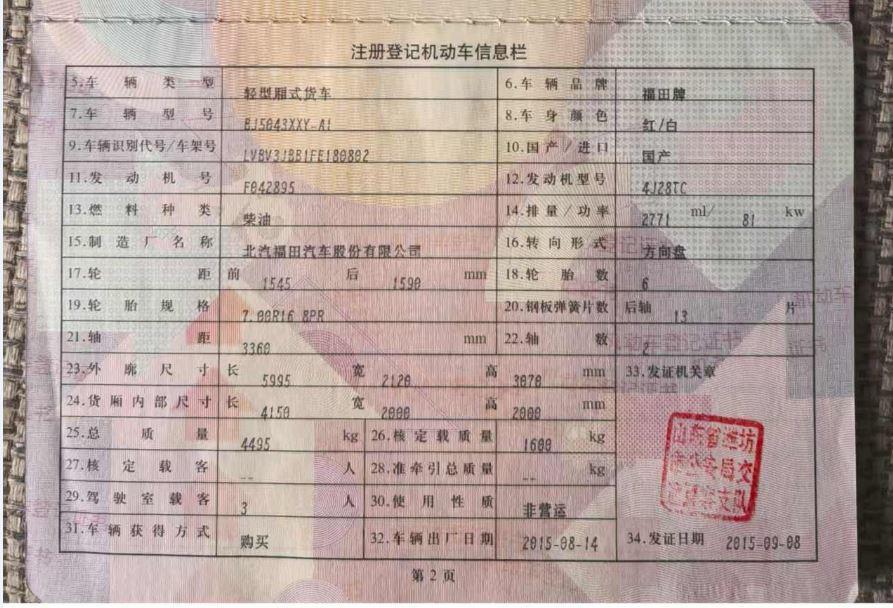 注册登记机动车信息栏
5.车辆类型 轻型厢式货车 6.车辆品牌 福田牌
7.车辆型号 BJ5043XXY-A1 8.车身颜色 红/白
9.车辆识别代号/车架号 LVBV3JBB1FE180802 10.国产/进口 国产
11.发动机号 F042895 12.发动机型号 4J28TC
13.燃料种类 柴油 14.排量/功率 2771 ml/ 81 kw
15.制造厂名称 北汽福田汽车股份有限公司 16.转向形式 方向盘
17.轮距 前 1545 后 1590 mm 18.轮胎数 6
19.轮胎规格 7.00R16 8PR 20.钢板弹簧片数 后轴 13 片
21.轴距 3360 mm 22.轴数 2
23.外廓尺寸 长 5995 宽 2120 高 3070 mm 33.发证机关章
24.货厢内部尺寸 长 4150 宽 2000 高 2000 mm
25.总质量 4495 kg 26.核定载质量 1600 kg
27.核定载客 -- 人 28.准牵引总质量 -- kg
29.驾驶室载客 3 人 30.使用性质 非营运
31.车辆获得方式 购买 32.车辆出厂日期 2015-08-14 34.发证日期 2015-09-08
山东省潍坊
市公安局交
警支队
第2页